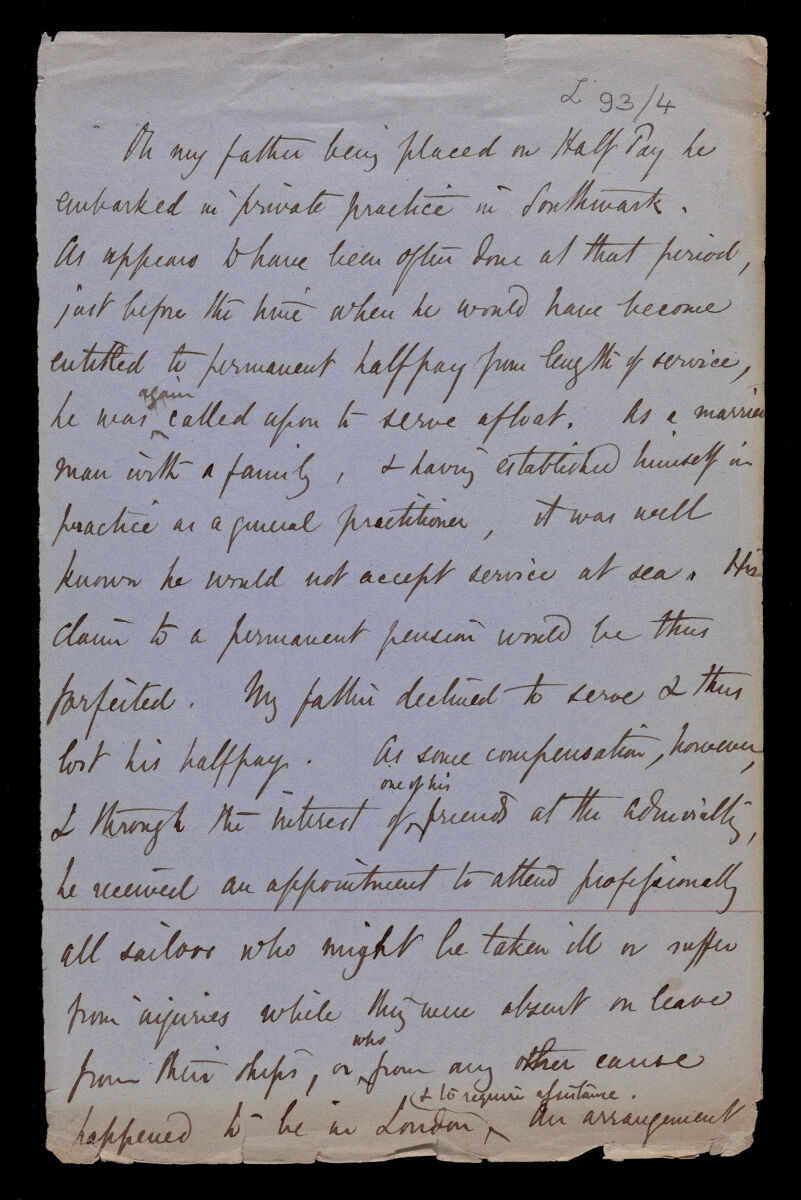 L 93/4
On my father being placed on Half Pay he
embarked in private practice in Southwark.
As appears to have been often done at that period,
just before the time when he would have become
entitled to permanent halfpay from length of service,
again
he was called upon to serve afloat. As a married
man with a family, & having established himself in
practice as a general practitioner, it was well
known he would not accept service at sea. His
claim to a permanent pension would be thus
forfeited. My father declined to serve & thus
lost his halfpay. As some compensation, however,
one of his
& through the interest of friends at the Admiralty,
he received an appointment to attend professionally
all sailors who might be taken ill or suffer
from injuries while they were absent on leave
who
from their ships, or from any other cause
& to require assistance.
happened to be in London, An arrangement